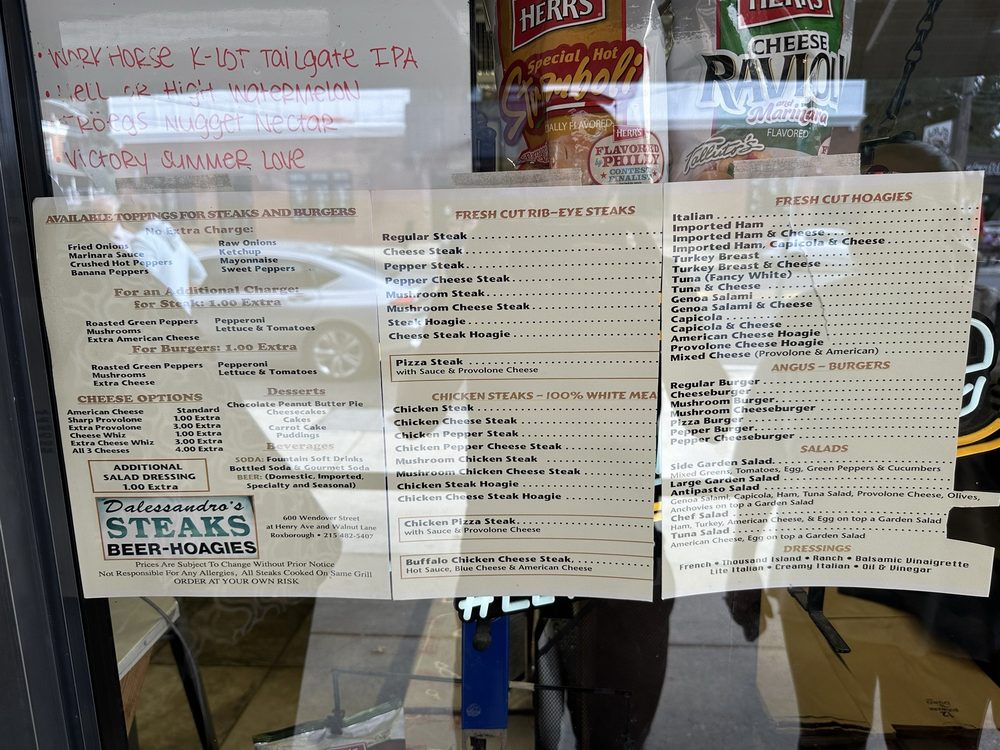 • WORKHORSE K-LOT Tailgate IPA
• HELL OR High WATERMELON
TRÖEGS Nugget Nectar
• VICTORY SUMMER LOVE
HERR'S
Special Hot
Stromboli
FLAVORED
HERR'S
FLAVORED
BY PHILLY
CONTEST
FINALIST
HERR'S
CHEESE
RAVIOLI
and
Marinara
FLAVORED
AVAILABLE TOPPINGS FOR STEAKS AND BURGERS
No Extra Charge:
Fried Onions
Marinara Sauce
Crushed Hot Peppers
Banana Peppers
Raw Onions
Ketchup
Mayonnaise
Sweet Peppers
For an Additional Charge:
for Steak: 1.00 Extra
Roasted Green Peppers
Mushrooms
Extra American Cheese
Pepperoni
Lettuce & Tomatoes
For Burgers: 1.00 Extra
Roasted Green Peppers
Mushrooms
Extra Cheese
Pepperoni
Lettuce & Tomatoes
CHEESE OPTIONS
American Cheese Standard
Sharp Provolone 1.00 Extra
Extra Provolone 3.00 Extra
Cheese Whiz 1.00 Extra
Extra Cheese Whiz 3.00 Extra
All 3 Cheeses 4.00 Extra
ADDITIONAL
SALAD DRESSING
1.00 Extra
Desserts
Chocolate Peanut Butter Pie
Cheesecakes
Cakes
Carrot Cake
Puddings
Beverages
SODA: Fountain Soft Drinks
Bottled Soda & Gourmet Soda
BEER: (Domestic, Imported,
Specialty and Seasonal)
Dalessandro's
STEAKS
BEER-HOAGIES
600 Wendover Street
at Henry Ave and Walnut Lane
Roxborough • 215 482-5407
Prices Are Subject To Change Without Prior Notice
Not Responsible For Any Allergies, All Steaks Cooked On Same Grill
ORDER AT YOUR OWN RISK
FRESH CUT RIB-EYE STEAKS
Regular Steak
Cheese Steak
Pepper Steak
Pepper Cheese Steak
Mushroom Steak
Mushroom Cheese Steak
Steak Hoagie
Cheese Steak Hoagie
Pizza Steak
with Sauce & Provolone Cheese
CHICKEN STEAKS – 100% WHITE MEA
Chicken Steak
Chicken Cheese Steak
Chicken Pepper Steak
Chicken Pepper Cheese Steak
Mushroom Chicken Steak
Mushroom Chicken Cheese Steak
Chicken Steak Hoagie
Chicken Cheese Steak Hoagie
Chicken Pizza Steak
with Sauce & Provolone Cheese
Buffalo Chicken Cheese Steak
Hot Sauce, Blue Cheese & American Cheese
FRESH CUT HOAGIES
Italian
Imported Ham
Imported Ham & Cheese
Imported Ham, Capicola & Cheese
Turkey Breast
Turkey Breast & Cheese
Tuna (Fancy White)
Tuna & Cheese
Genoa Salami
Genoa Salami & Cheese
Capicola
Capicola & Cheese
American Cheese Hoagie
Provolone Cheese Hoagie
Mixed Cheese (Provolone & American)
ANGUS – BURGERS
Regular Burger
Cheeseburger
Mushroom Burger
Mushroom Cheeseburger
Pizza Burger
Pepper Burger
Pepper Cheeseburger
SALADS
Side Garden Salad
Mixed Greens, Tomatoes, Egg, Green Peppers & Cucumbers
Large Garden Salad
Antipasto Salad
Genoa Salami, Capicola, Ham, Tuna Salad, Provolone Cheese, Olives,
Anchovies on top a Garden Salad
Chef Salad
Ham, Turkey, American Cheese, & Egg on top a Garden Salad
Tuna Salad
American Cheese, Egg on top a Garden Salad
DRESSINGS
French • Thousand Island • Ranch • Balsamic Vinaigrette
Lite Italian • Creamy Italian • Oil & Vinegar